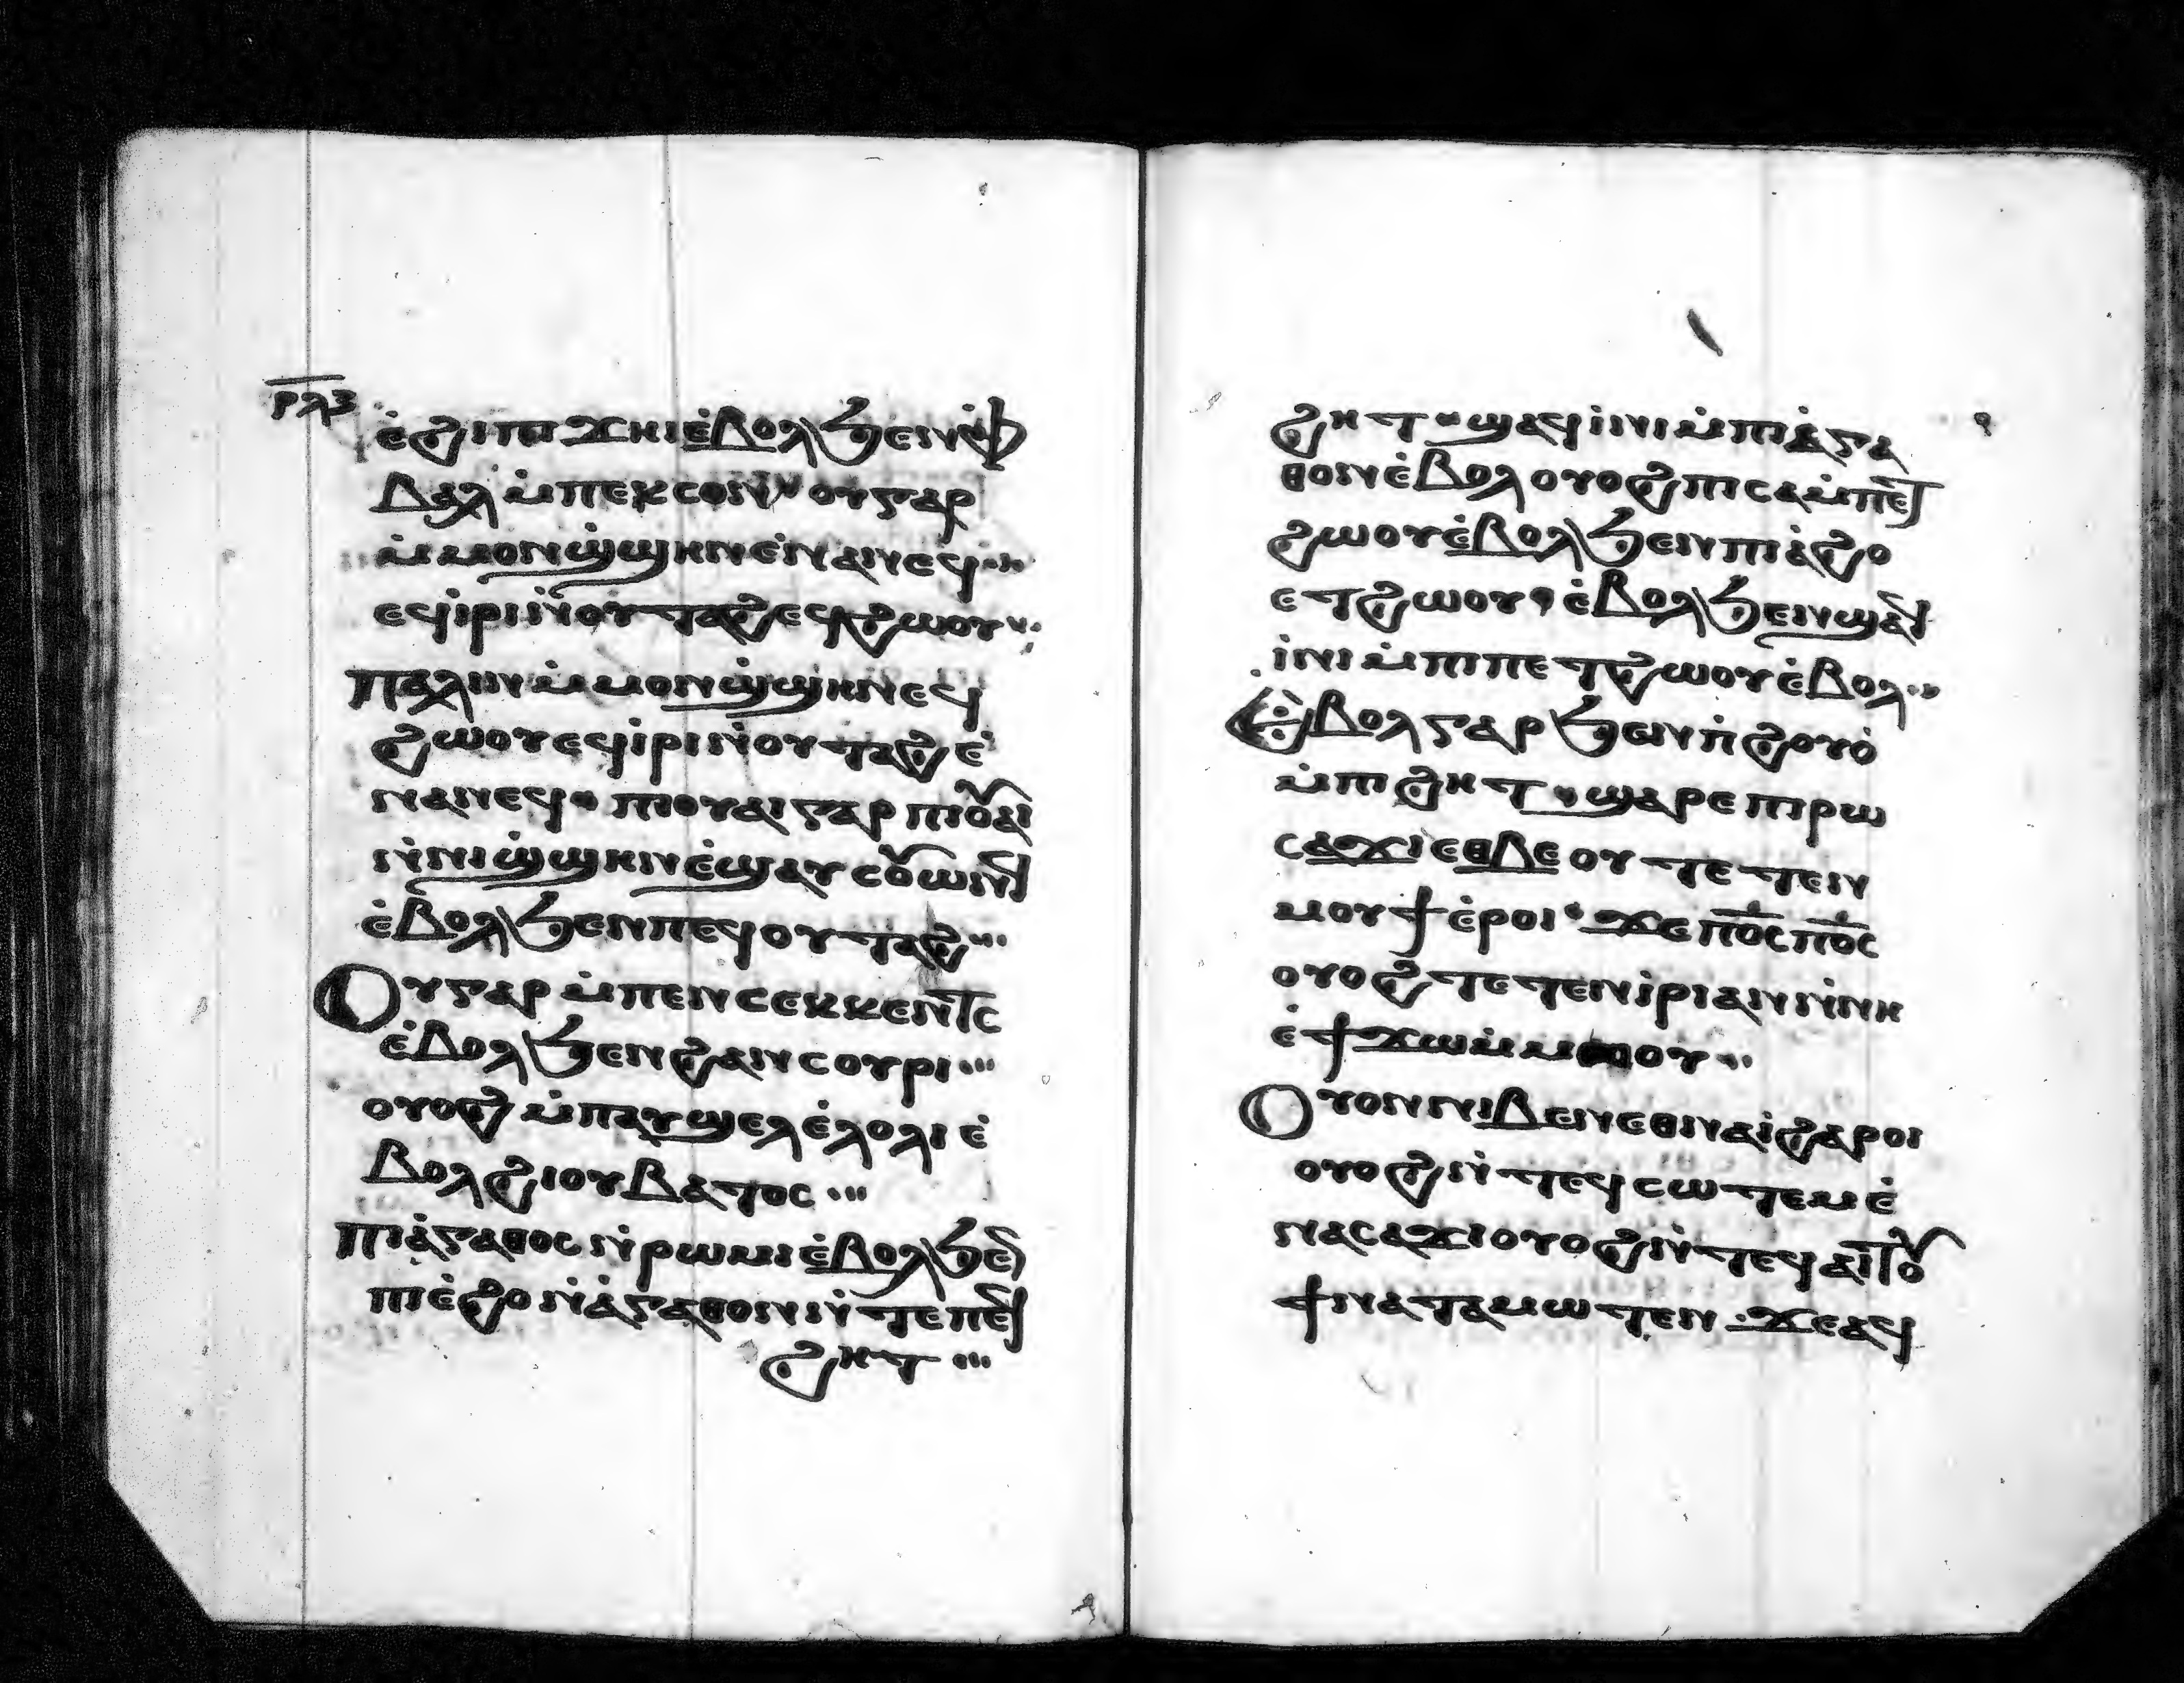 ⲣⲗⲍ
ⲉ̀ϩⲓⲡⲓϫⲏⲓⲉ̀ⲃⲟⲗϧⲉⲛⲫ̀
ⲃⲁⲗⲙ̀ⲡⲉⲕⲥⲟⲛ ⲟⲩⲅⲁⲣ
ⲙ̀ⲙⲟⲛϣ̀ϣⲏⲛⲉ̀ⲛⲁⲛⲉϥ
ⲉϥⲓ̀ⲣⲓⲛ̀ⲟⲩⲧⲁϩⲉϥϩⲱⲟⲩ
ⲡⲁⲗⲓⲛⲙ̀ⲙⲟⲛϣ̀ϣⲏⲛⲉϥ
ϩⲱⲟⲩⲉϥⲓ̀ⲣⲓⲛ̀ⲟⲩⲧⲁϩⲉ̀
ⲛⲁⲛⲉϥ ⲡⲓⲟⲩⲁⲓⲅⲁⲣⲡⲓⲟⲩⲁⲓ
ⲛ̀ⲛⲓϣ̀ϣⲏⲛⲉ̀ϣⲁⲩⲥⲟⲩⲱⲛϥ
ⲉ̀ⲃⲟⲗϧⲉⲛⲡⲉϥⲟⲩⲧⲁϩ
ⲟⲩⲅⲁⲣⲙ̀ⲡⲉⲛⲥⲉⲕⲕⲉⲛⲧⲥ
ⲉ̀ⲃⲟⲗϧⲉⲛϩⲁⲛⲥⲟⲩⲣⲓ
ⲟⲩⲟϩⲙ̀ⲡⲁⲩϣⲉⲗⲉ̀ⲗⲟⲗⲓⲉ̀
ⲃⲟⲗϩⲓⲟⲩⲃⲁⲧⲟⲥ
ⲡⲓⲁ̀ⲅⲁⲑⲟⲥⲛ̀ⲣⲱⲙⲓⲉ̀ⲃⲟⲗϧⲉ̄
ⲡⲓⲉ̀ϩⲟⲛ̀ⲁ̀ⲅⲁⲑⲟⲛⲛ̀ⲧⲉⲡⲉϥ
ϩⲏⲧ
ϩⲏⲧ ϣⲁϥⲓ̀ⲛⲓⲙ̀ⲡⲓⲁ̀ⲅⲁ
ⲑⲟⲛⲉ̀ⲃⲟⲗⲟⲩⲟϩⲡⲓⲥⲁⲙ̀ⲡⲉⲧ
ϩⲱⲟⲩⲉ̀ⲃⲟⲗϧⲉⲛⲡⲓⲁ̀ϩⲟ
ⲉⲧϩⲱⲟⲩ ⲉ̀ⲃⲟⲗϧⲉⲛϣⲁϥ
ⲓ̀ⲛⲓⲙ̀ⲡⲓⲡⲉⲧϩⲱⲟⲩⲉ̀ⲃⲟⲗ
ⲉ̀ⲃⲟⲗⲅⲁⲣϧⲉⲛⲡ̀ϩⲟⲩⲟ̀
ⲙ̀ⲡⲓϩⲏⲧ ϣⲁⲣⲉⲡⲓⲣⲱ
ⲥⲁϫⲓⲉⲑⲃⲉⲟⲩⲧⲉⲧⲉⲛ
ⲙⲟⲩϯⲉ̀ⲣⲟⲓ ϫⲉⲡⲟ̅ⲥ̅ⲡⲟ̅ⲥ̅
ⲟⲩⲟϩⲧⲉⲧⲉⲛⲓ̀ⲣⲓⲁⲛⲛ̀ⲛⲏ
ⲉ̀ϯϫⲱⲙ̀ⲙⲱⲟⲩ
ⲟⲩⲟⲛⲛⲓⲃⲉⲛⲉⲑⲛⲁⲓ̀ϩⲁⲣⲟⲓ
ⲟⲩⲟϩⲛ̀ⲧⲉϥⲥⲱⲧⲉⲙⲉ̀
ⲛⲁⲥⲁϫⲓⲟⲩⲟϩⲛ̀ⲧⲉϥⲁⲓⲧⲟⲩ
ϯⲛⲁⲧⲁⲙⲱⲧⲉⲛ ϫⲉⲁϥ